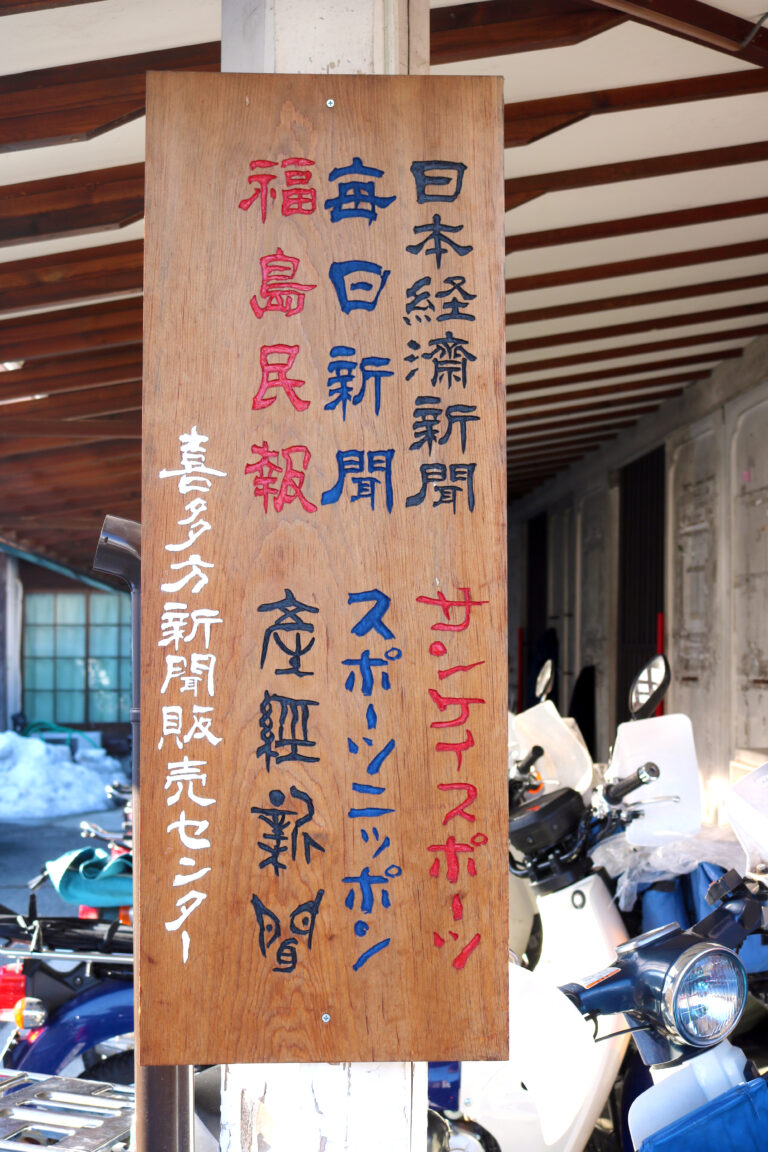 日本経済新聞
毎日新聞
福島民報
サンケイスポーツ
スポーツニッポン
産経新聞
喜多方新聞販売センター